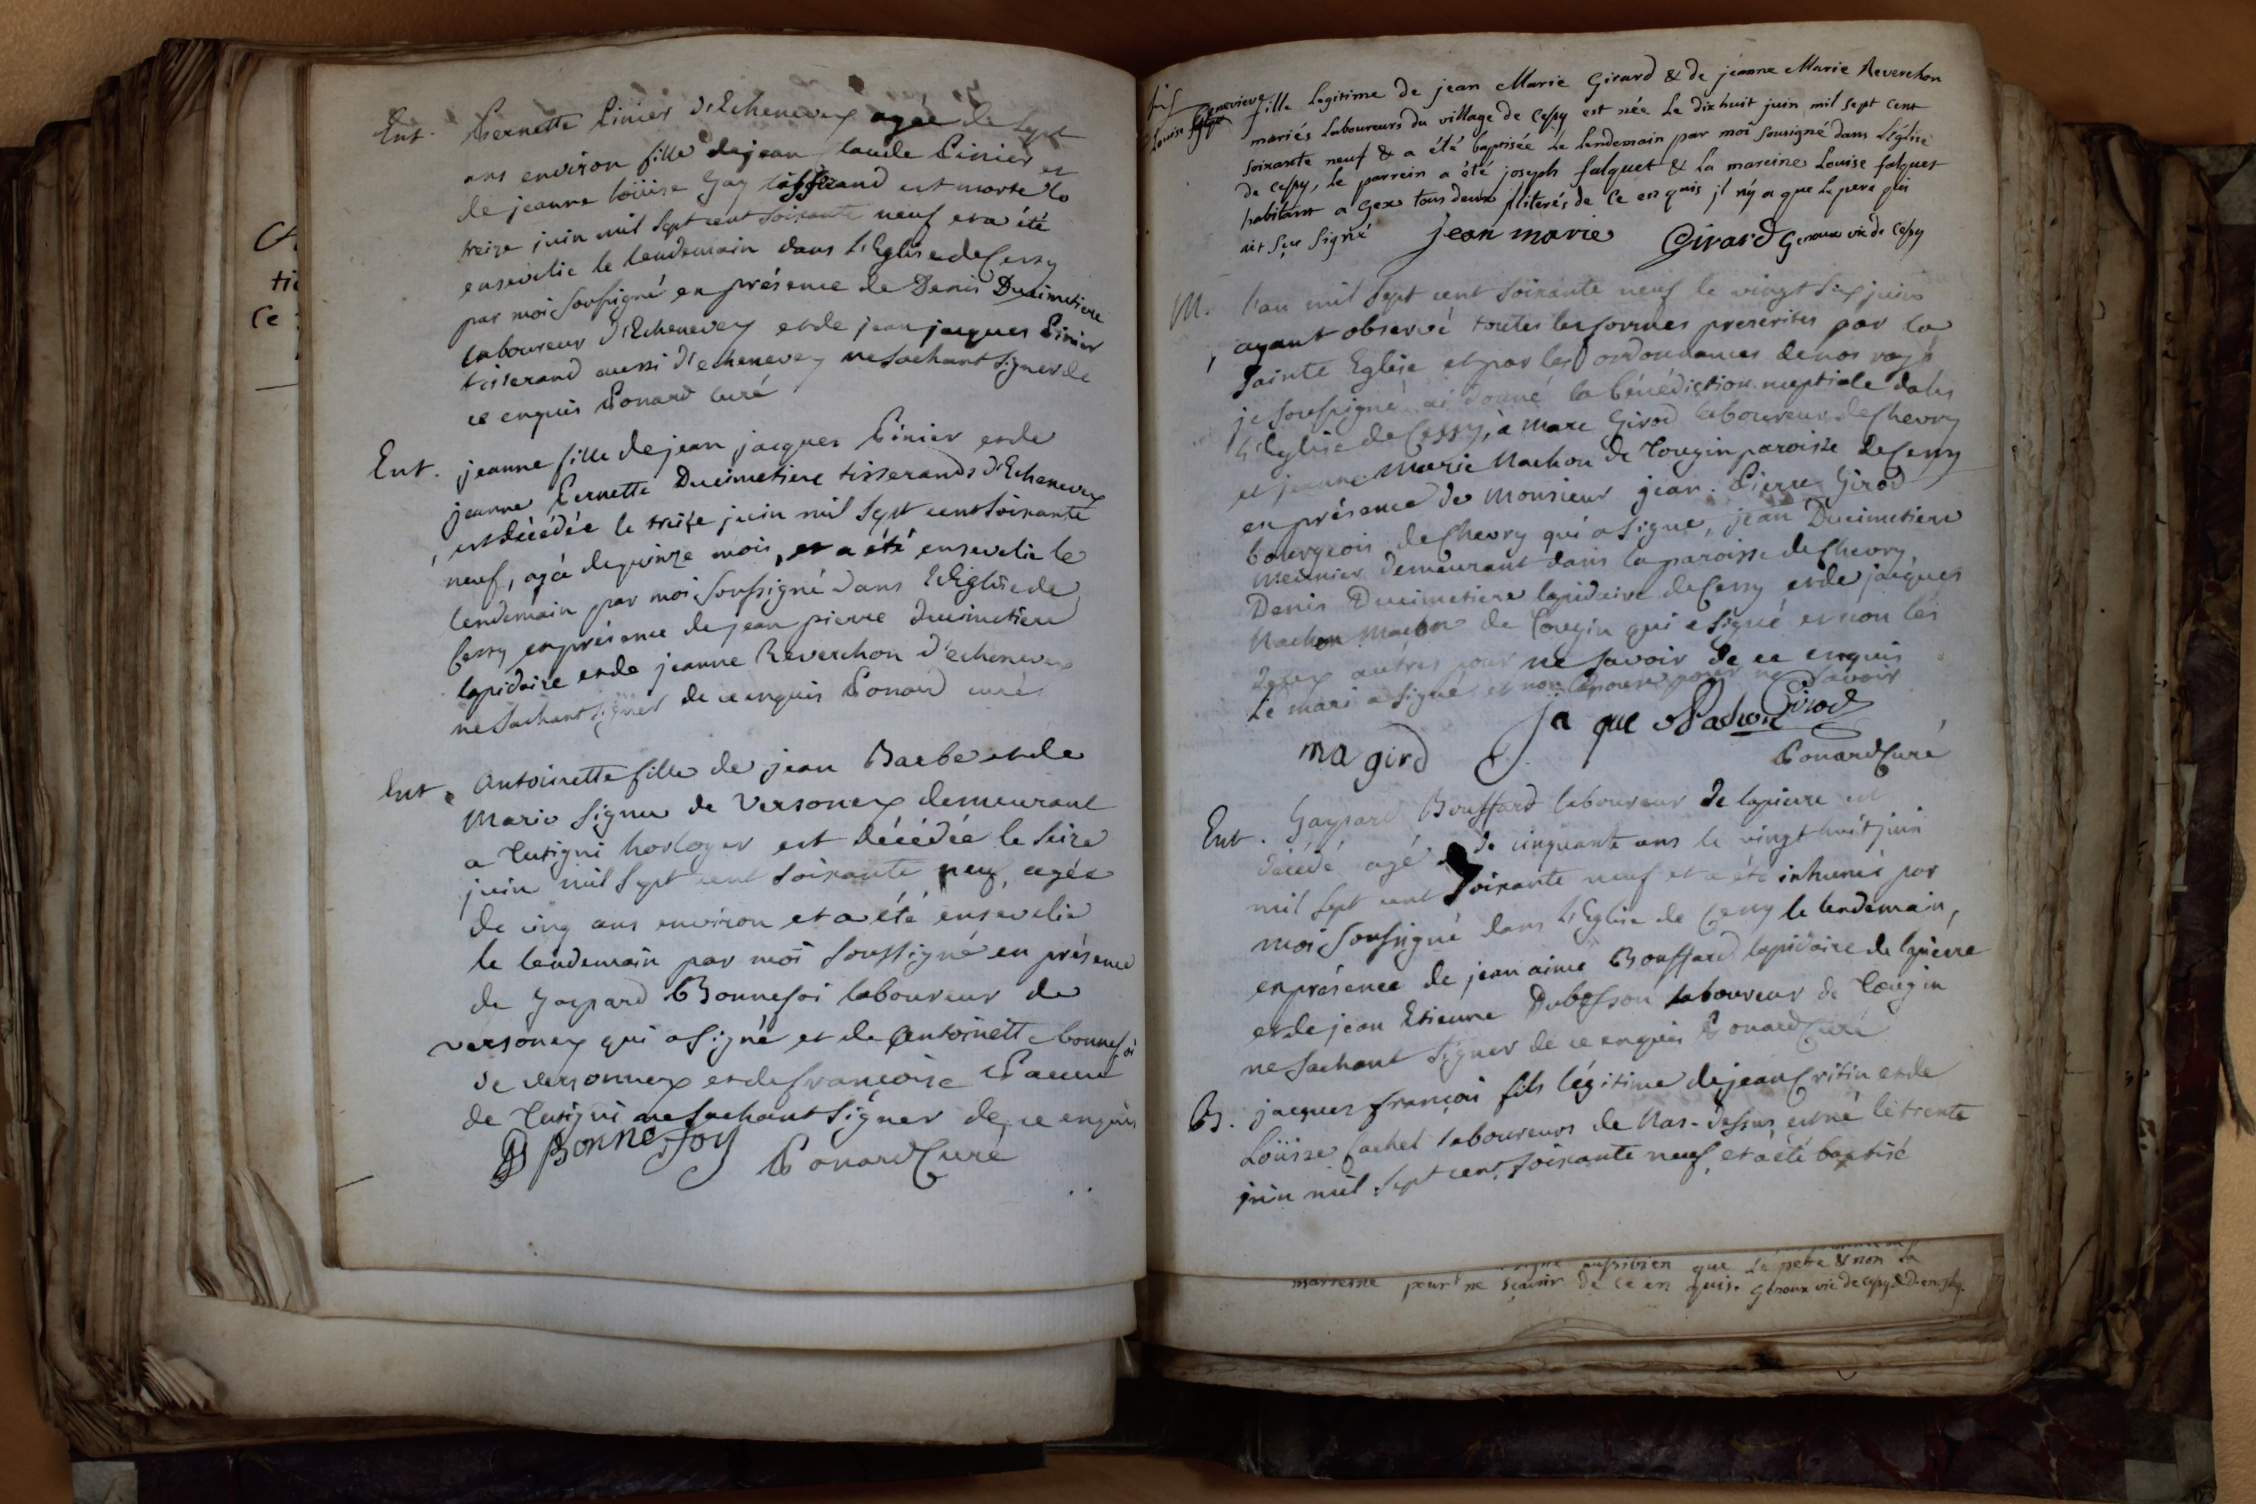 Ent. Pernette Pinier d'Echenevex agée de sept
ans environ fille de jean claude Pinier et
de jeanne loüise Gay tisserand est morte le
treize juin mil sept cent soixante neuf et a été
ensevelie le lendemain dans l'Eglise de Cessy
par moi soussigné en présence de Denis Ducimetiere
laboureur d'Echenevex et de jean jacques Pinier
tisserand aussi d'echenevex ne sachant signer de
ce enquis Ponard curé
Ent. jeanne fille de jean jacques Pinier et de
jeanne Pernette Ducimetiere tisserands d'Echenevex
est décédée le treize juin mil sept cent soixante
neuf, agée de quinze mois, et a été ensevelie le
lendemain par moi soussigné dans l'Eglise de
Cessy en présence de jean pierre ducimetiere
lapidaire et de jeanne Reverchon d'echenevex
ne sachant signer de ce enquis Ponard curé
Ent. Antoinette fille de jean Barbe et de
Marie signer de Versonex demeurant
a Cutigni horloger est décédée le seize
juin mil sept cent soixante neuf, agée
de cinq ans environ et a été ensevelie
le lendemain par moi soussigné en présence
de Gaspard Bonnefoi laboureur de
versonex qui a signé et de Antoinette bonnefoi
de versonnex et de françoise
de Cutigni ne sachant signer de ce enquis
Bonnefoy Ponard Curé
Genevieve
Louise fille legitime de jean Marie Girard & de jeanne Marie Reverchon
mariés Laboureurs du village de Cessy est née Le dixhuit juin mil sept cent
soixante neuf & a été baptisée Le Lendemain par moi sousigné dans L'église
de Cessy, Le parrein a été joseph falquet & La mareine Louise falquet
habitant a Gex tous deux illiterés de Ce enquis jl n'y a que Le pere qui
ait sçu signé jean marie Girard Genoux vic de Cessy
M. l'an mil sept cent soixante neuf le vingt six juin
ayant observé toutes les formes prescrites par la
sainte Eglise et par les ordonnances de nos roys
je soussigné ai donné la bénédiction nuptiale dans
l'Eglise de Cessy, à Marc Girod laboureur de Chevry
et jeanne Marie Nachon de Tougin paroisse de Cessy
en présence de Monsieur jean-Pierre Girod
bourgeois de Chevry qui a signé, jean Ducimetiere
meunier demeurant dans la paroisse de Chevry,
Denis Ducimetiere lapidaire de Cessy et de jacques
Nachon de Tougin qui a signé et non les
deux autres pour ne savoir de ce enquis
Le mari a signé et non l'épouse pour ne savoir
ma gird ja que Nachon Girod
Ponard Curé
Ent. Gaspard Bouffard laboureur de lapierre est
décédé agé de cinquante ans le vingt huit juin
mil sept cent soixante neuf et a été inhumé par
moi soussigné dans l'Eglise de Cessy le lendemain,
en présence de jean aimé Bouffard lapidaire de lapierre
et de jean Etienne Dubosson laboureur de Tougin
ne sachant signer de ce enquis Ponard Curé
B. jacques françois fils légitime de jean Critin et de
Loüise fachet laboureurs de Nas-dessus, est né le trente
juin mil sept cent soixante neuf, et a été baptisé
signé aussibien que Le pere & non La
marreine pour ne sçavoir de Ce en quis. Genoux vic de Cessy